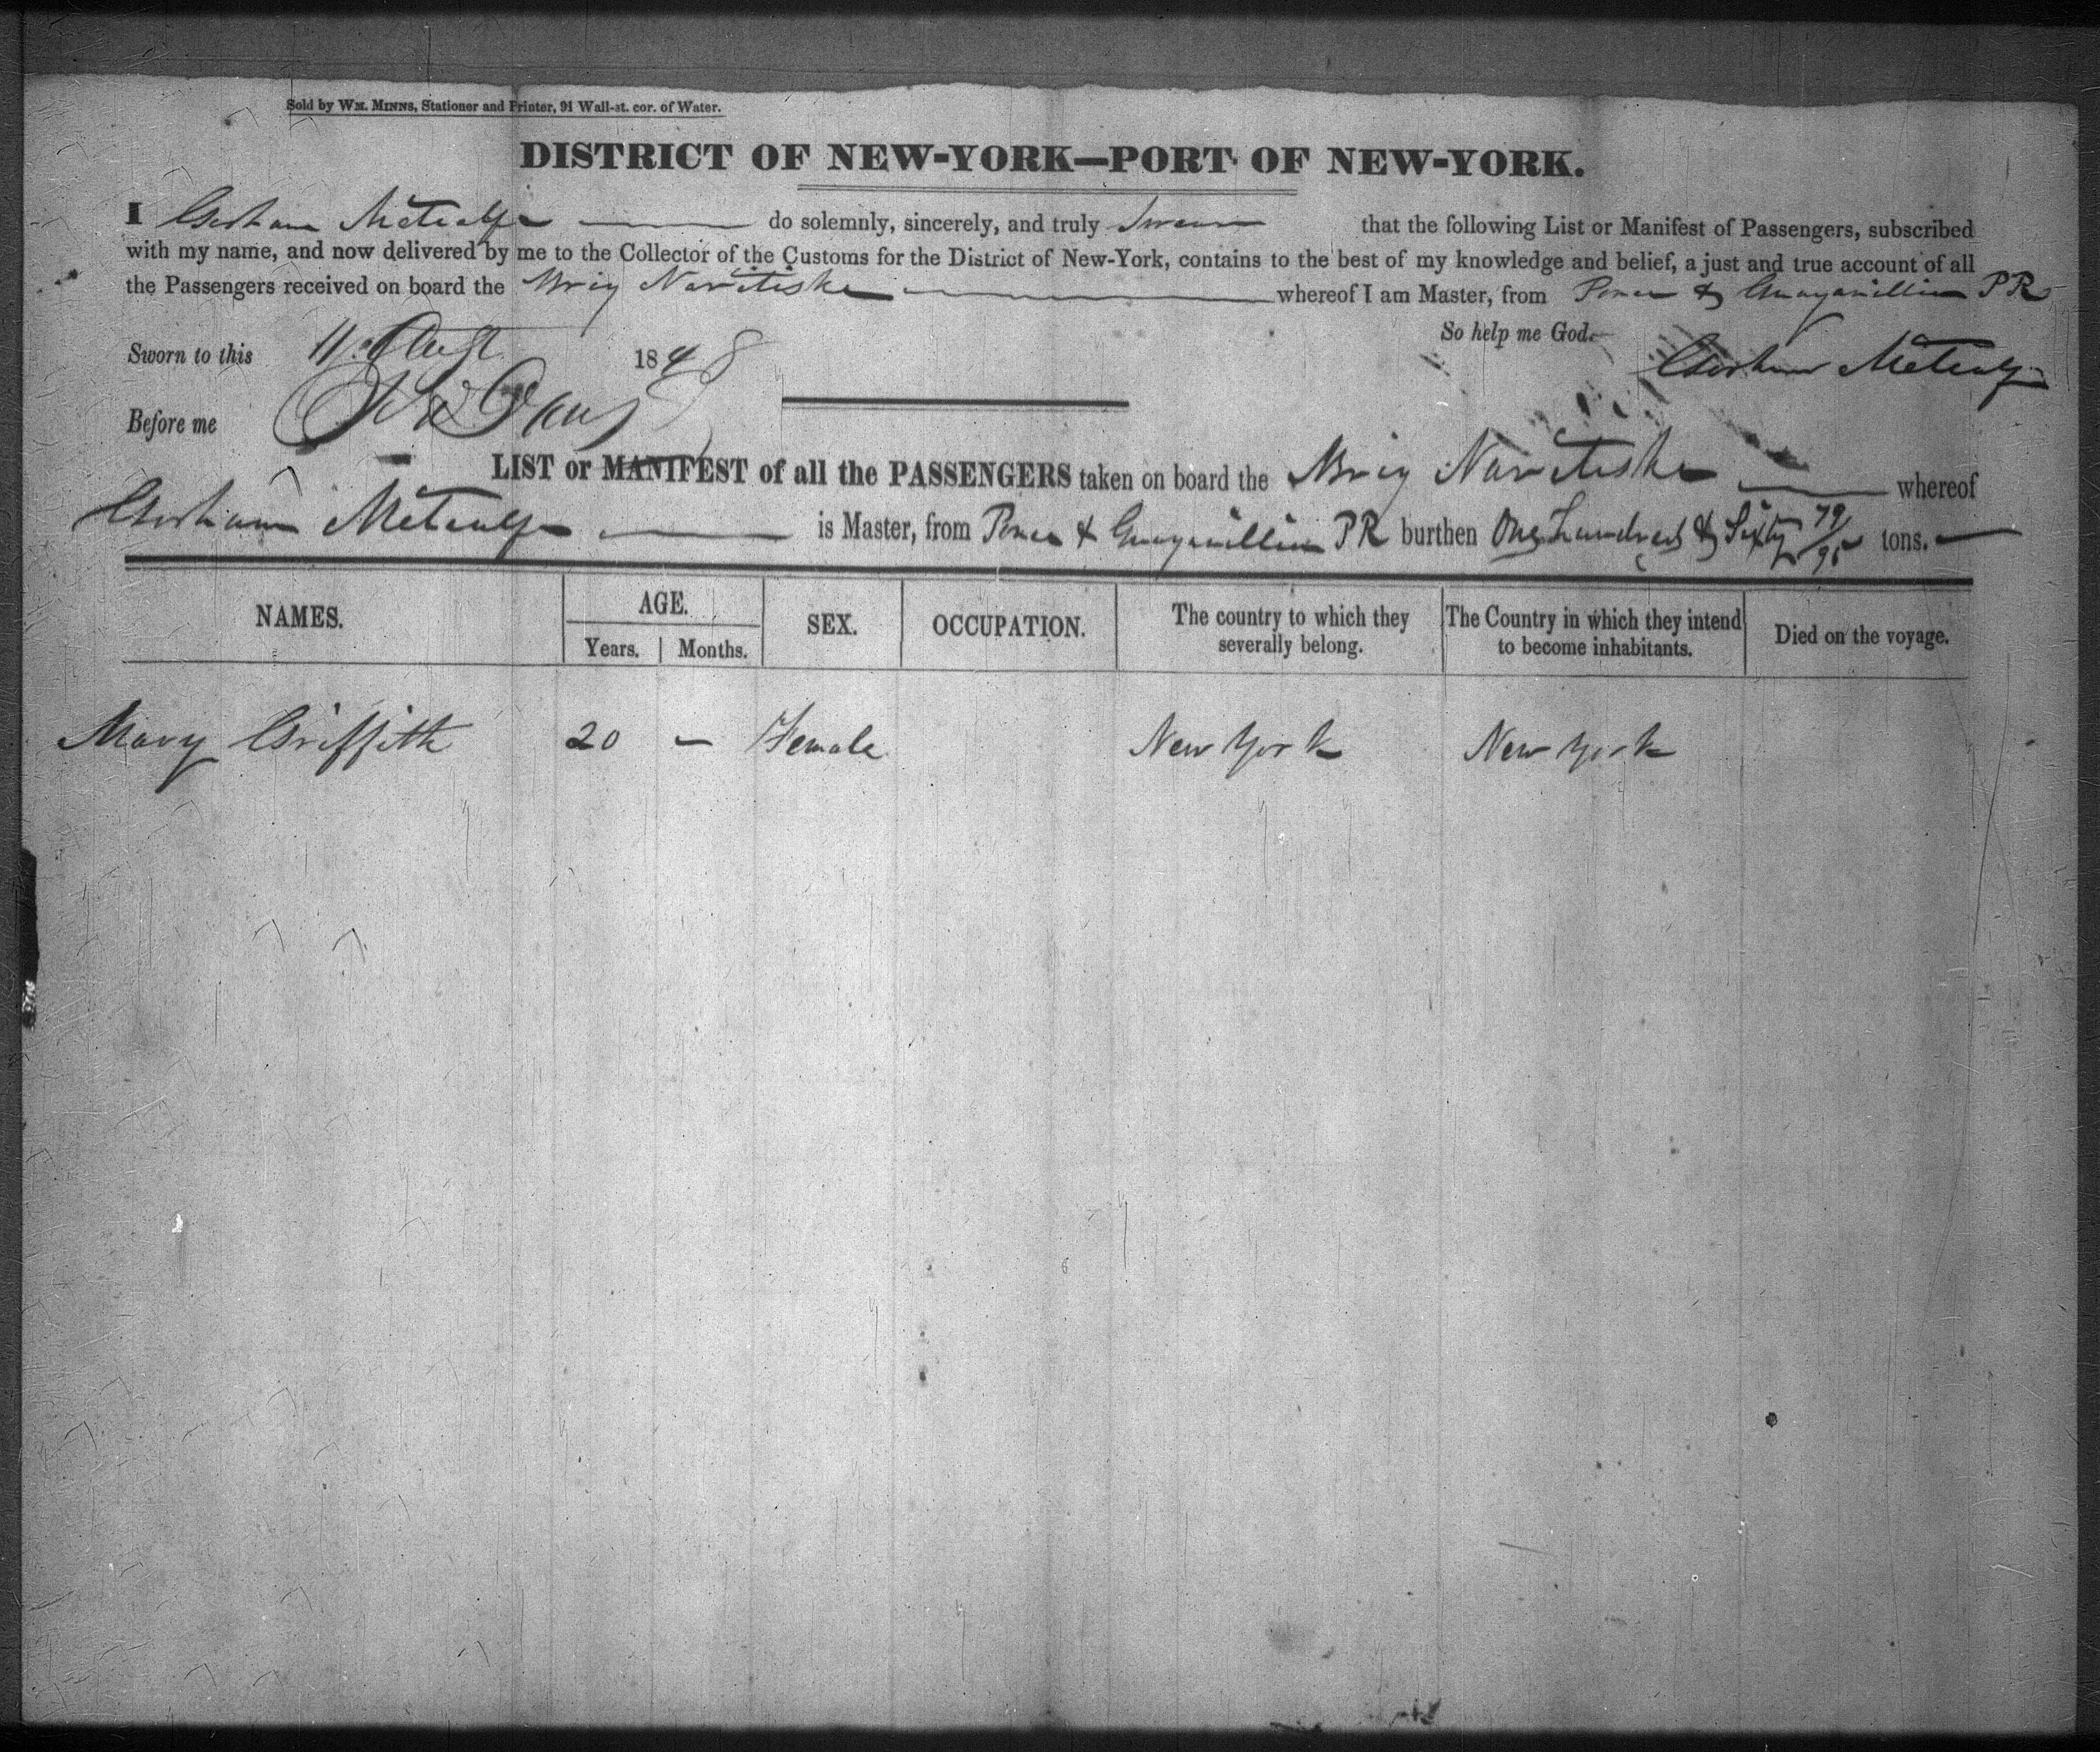 Sold by WM. MINNS, Stationer and Printer, 91 Wall-st. cor. of Water.
DISTRICT OF NEW-YORK—PORT OF NEW-YORK.
I Gorham Metcalf do solemnly, sincerely, and truly Swear that the following List or Manifest of Passengers, subscribed
with my name, and now delivered by me to the Collector of the Customs for the District of New-York, contains to the best of my knowledge and belief, a just and true account of all
the Passengers received on board the Brig Naritiske whereof I am Master, from Ponce & Guayanilla PR
So help me God.
Sworn to this 11 Augt 1848
Gorham Metcalf
Before me
LIST or MANIFEST of all the PASSENGERS taken on board the Brig Naritiske whereof
Gorham Metcalf is Master, from Ponce & Guayanilla PR burthen One hundred & Sixty 79/95 tons.
NAMES. AGE. SEX. OCCUPATION. The country to which they severally belong. The Country in which they intend to become inhabitants. Died on the voyage.
Years. Months.
Mary Griffith 20 – Female New York New York